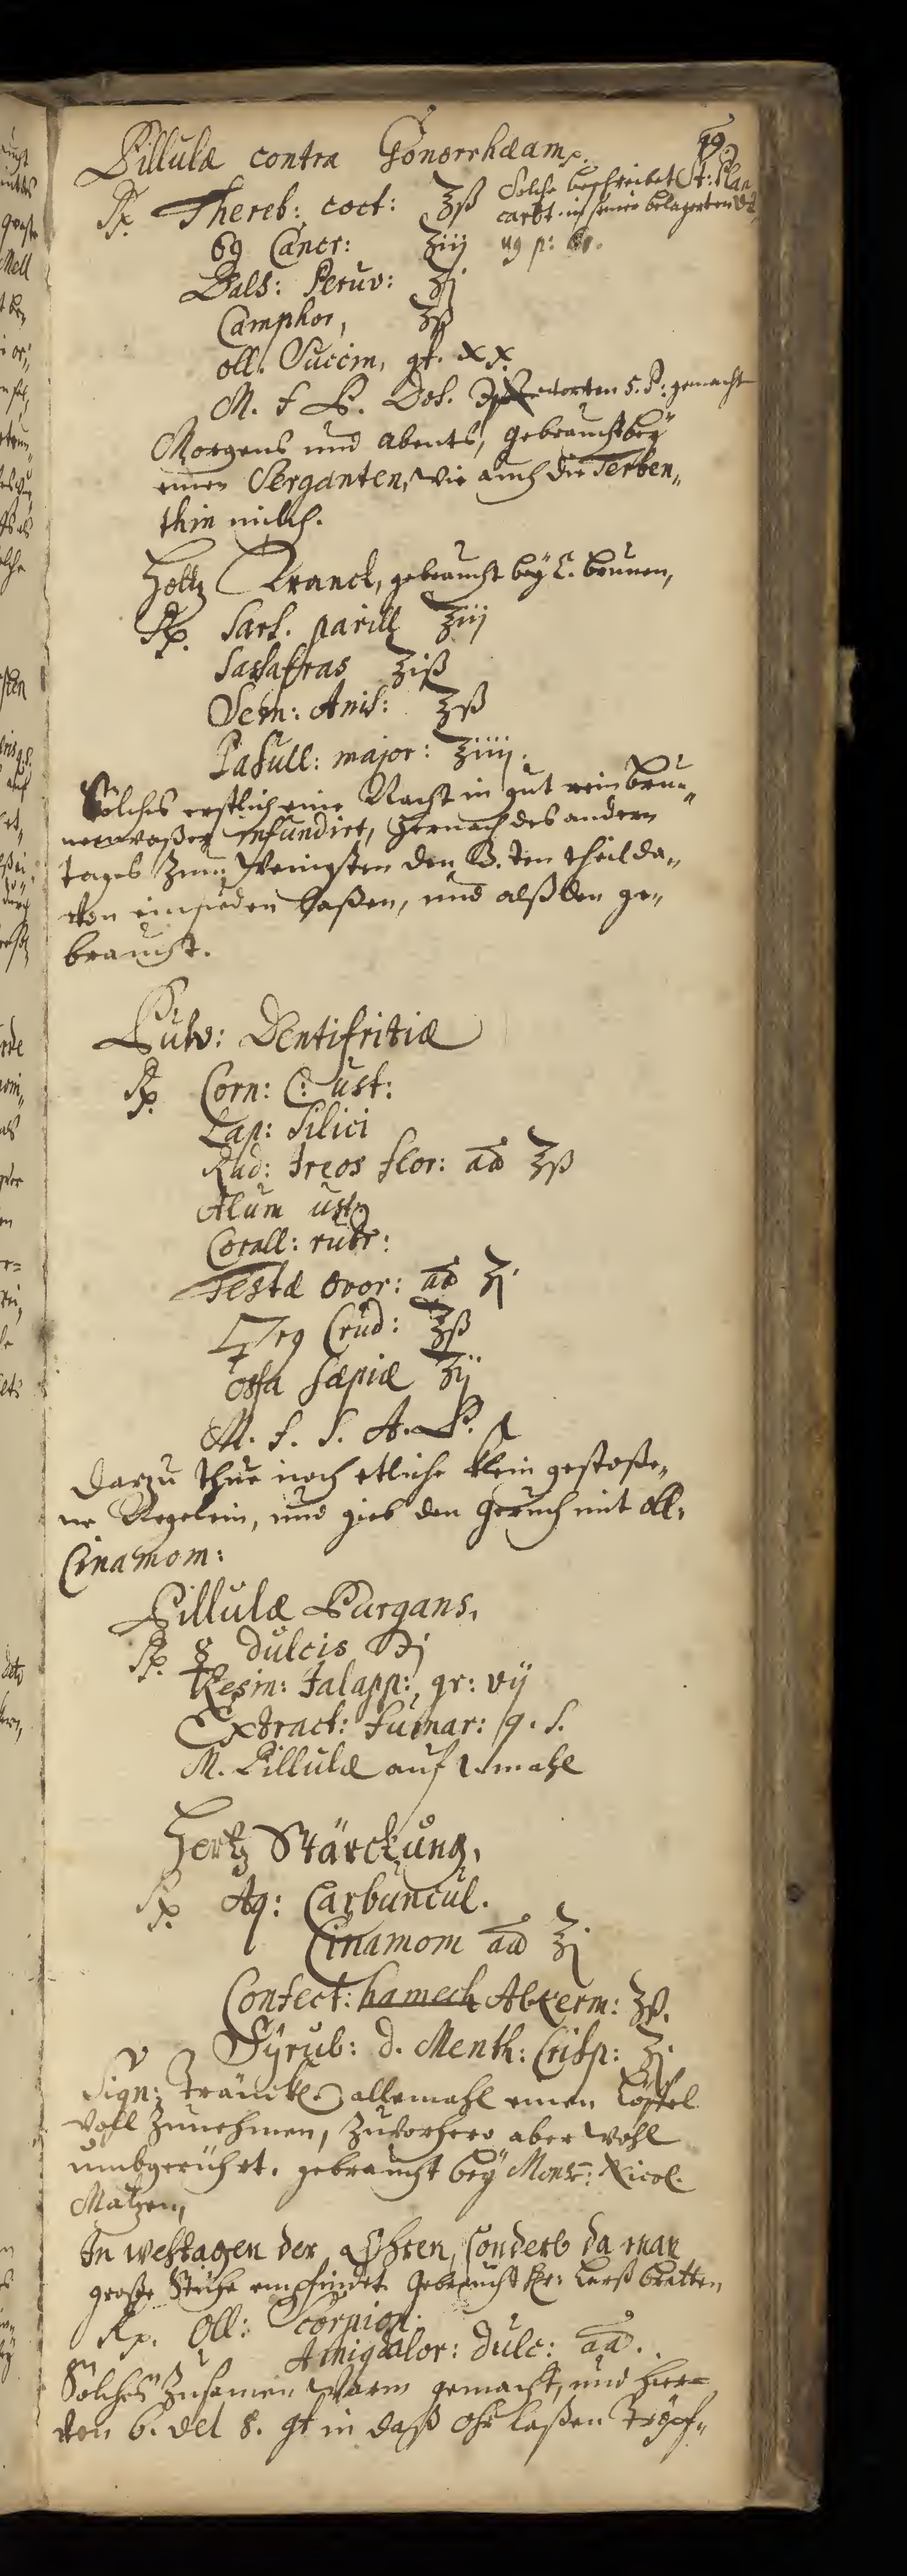 99
Pillulæ contra Gonorrhæam.
Rx. Thereb: coct: ℥ß Solche beschreibet St: Blan
cart in seiner belagerten
69 Cancr: ʒiij ug p:
Bals: Peruv: ʒj
Camphor, ʒß
oll. Succin. gt. XX.
M. f P. Dos. 5. P: gemacht
Morgens und Abents, gebraucht bey
einen Serganten, wie auch die Terben„
thin milch.
Holtz Tranck, gebraucht bey C. brunen,
Rp. Sars. parill ℥iij
Sassafras ℥iß
Sem: Anis: ℥ß
Passull: major: ℥iiij.
Solches erstlich eine Nacht in gut rein brun„
nenwaßer infundirt, hernach des andern
tages zum wenigsten den 3.ten theil da„
von einsieden laßen, und alßden ge„
braucht.
Pulv: Dentifritiæ
Rp. Corn: C: ust:
Lap: Silici
Rad: Ireos flor: aa ℥ß
Alum ust
Corall: rubr:
Testæ Ovor: aa ʒj
rg Crud: ℥ß
ossa sæpiæ ʒij
M. f. S. A. P.
Darzu thue noch etliche klein gestoße„
ne Negelein, und gieb den Geruch mit oll.
Cinamom:
Pillulæ Purgans.
Rp. ☿ dulcis ℈j
Resin: Jalapp: gr: vij
Extract: fumar: q. s.
M. Pillulæ auf 1. mahl
Hertz Stärckung.
Rp. Aq: Carbuncul.
Cinamom aa ℥j
Confect: hamech Alkerm: ʒß.
Syrub: d. Menth: Crisp: ℥j.
Sign: Träncklein allemahl einen Löffel
voll zunehmen, zuvorhero aber wohl
umbgerührt. gebraucht bey Monsr: Nicol.
Matzen,
In wehtagen der Ohren, sonderb da man
große Stiche empfindet. Gebraucht Hr: Larß Bratten
Rp. Oll: Scorpion:
Amigdalor: dulc: aa.
Solches zusamen warm gemacht, und hier=
von 6. vel 8. gt in daß Ohr laßen tröpf„